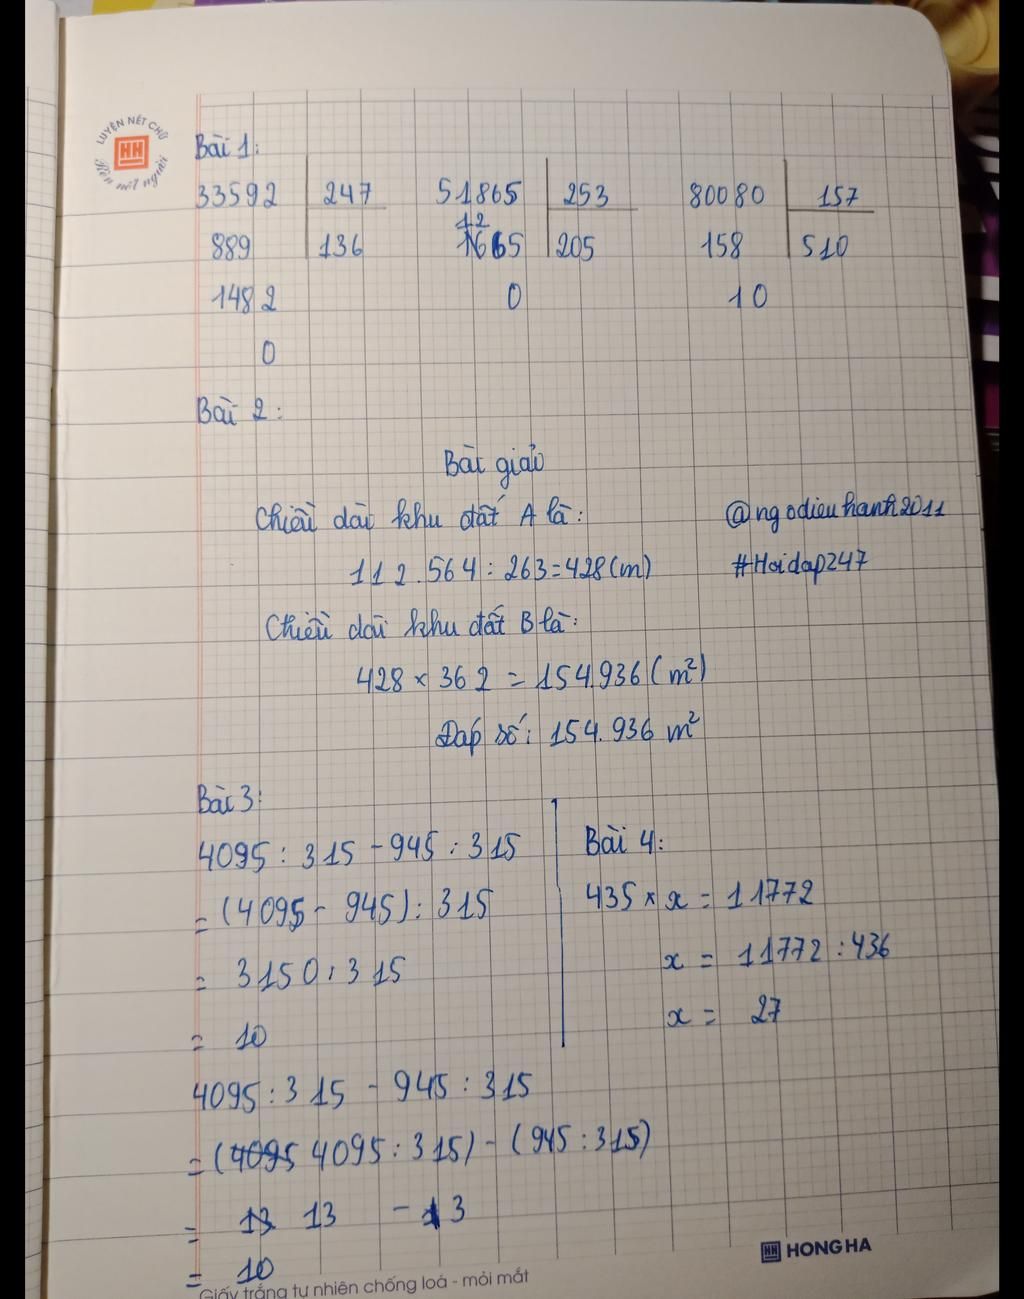 LUYỆN NÉT CHỮ
HH
Rèn nết người
Bài 1:
33592 247 51865 253 80080 157
12
889 136 1665 205 158 510
1482 0 10
0
Bài 2:
Bài giải
Chiều dài khu đất A là: @ngodieuhanh2011
112.564 : 263 = 428 (m) #Hoidap247
Chiều dài khu đất B là:
428 × 362 = 154.936 (m²)
Đáp số: 154.936 m²
Bài 3:
4095 : 315 - 945 : 315
= (4095 - 945) : 315
= 3150 : 315
= 10
Bài 4:
435 × x = 11772
x = 11772 : 436
x = 27
4095 : 315 - 945 : 315
= (4095 4095 : 315) - (945 : 315)
= 13 13 - 3
= 10
HH HONG HA
Giấy trắng tự nhiên chống loá - mỏi mắt